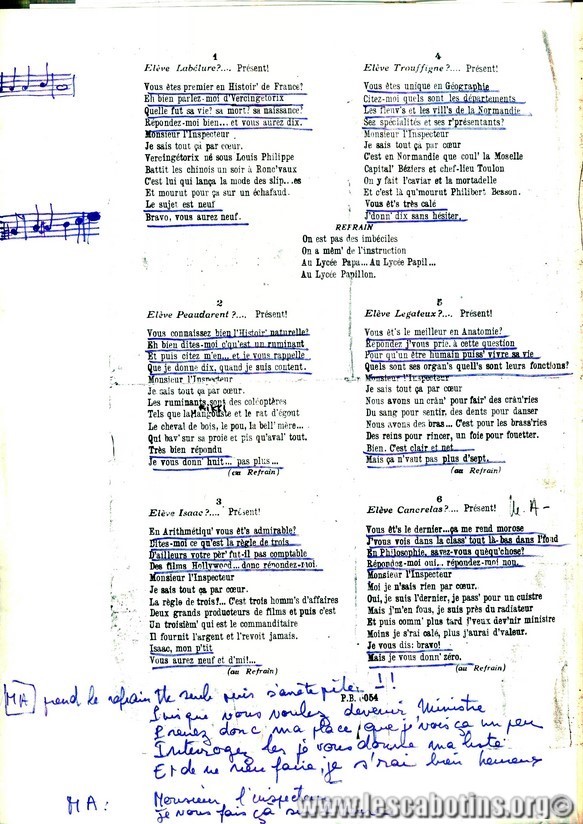 1
Elève Labélure?.... Présent!
Vous êtes premier en Histoir' de France?
Eh bien parlez-moi d'Vercingétorix
Quelle fut sa vie? sa mort? sa naissance?
Répondez-moi bien... et vous aurez dix.
Monsieur l'Inspecteur
Je sais tout ça par cœur.
Vercingétorix né sous Louis Philippe
Battit les chinois un soir à Ronc'vaux
C'est lui qui lança la mode des slip...es
Et mourut pour ça sur un échafaud.
Le sujet est neuf
Bravo, vous aurez neuf.
4
Elève Trouffigne?.... Présent!
Vous êtes unique en Géographie
Citez-moi quels sont les départements
Les fleuv's et les vill's de la Normandie
Ses spécialités et ses r'présentants?
Monsieur l'Inspecteur
Je sais tout ça par cœur.
C'est en Normandie que coul' la Moselle
Capital' Béziers et chef-lieu Toulon
On y fait l'caviar et la mortadelle
Et c'est là qu'mourut Philibert Besson.
Vous êt's très calé
J'donn' dix sans hésiter.
REFRAIN
On est pas des imbéciles
On a mêm' de l'instruction
Au Lycée Papa... Au Lycée Papil...
Au Lycée Papillon.
2
Elève Peaudarent?.... Présent!
Vous connaissez bien l'Histoir' naturelle?
Eh bien dites-moi c'qu'est un ruminant
Et puis citez m'en... et je vous rappelle
Que je donne dix, quand je suis content.
Monsieur l'Inspecteur
Je sais tout ça par cœur.
Les ruminants sont des coléoptères
Tels que la Mangouste et le rat d'égout
RIKKI
Le cheval de bois, le pou, la bell' mère...
Qui bav' sur sa proie et pis qu'aval' tout.
Très bien répondu
Je vous donn' huit... pas plus...
(au Refrain)
5
Elève Legateux?.... Présent!
Vous êt's le meilleur en Anatomie?
Répondez j'vous prie, à cette question
Pour qu'un être humain puiss' vivre sa vie
Quels sont ses organ's quell's sont leurs fonctions?
Monsieur l'Inspecteur
Je sais tout ça par cœur
Nous avons un crân' pour fair' des crân'ries
Du sang pour sentir, des dents pour danser
Nous avons des bras... C'est pour les brass'ries
Des reins pour rincer, un foie pour fouetter.
Bien. C'est clair et net
Mais ça n'vaut pas plus d'sept.
(au Refrain)
3
Elève Isaac?.... Présent!
En Arithmétiqu' vous êt's admirable?
Dites-moi ce qu'est la règle de trois
D'ailleurs votre pèr' fut-il pas comptable
Des films Hollywood... donc répondez-moi.
Monsieur l'Inspecteur
Je sais tout ça par cœur.
La règle de trois!... C'est trois homm's d'affaires
Deux grands producteurs de films et puis c'est
Un troisièm' qui est le commanditaire
Il fournit l'argent et l'revoit jamais.
Isaac, mon p'tit
Vous aurez neuf et d'mi!...
(au Refrain)
6
Elève Cancrelas?.... Présent!
Vous êt's le dernier...ça me rend morose
J'vous vois dans la class' tout là-bas dans l'fond
En Philosophie, savez-vous quèqu'chose?
Répondez-moi oui... répondez-moi non.
Monsieur l'Inspecteur
Moi je n'sais rien par cœur.
Oui, je suis l'dernier, je pass' pour un cuistre
Mais j'm'en fous, je suis près du radiateur
Et puis comm' plus tard j'veux dev'nir ministre
Moins je s'rai calé, plus j'aurai d'valeur.
Je vous dis: bravo!
Mais je vous donn' zéro.
(au Refrain)
P.B. 1054
MA prend le refrain seul puis !!
Puisque vous voulez devenir Ministre
Prenez donc ma place, que j'vois ça un peu
Interrogez les je vous donne ma liste
Et de ne rien faire, je s'rai bien heureux
MA: Monsieur l'inspecteur
Je vous fais ça
www.lescabotins.org©